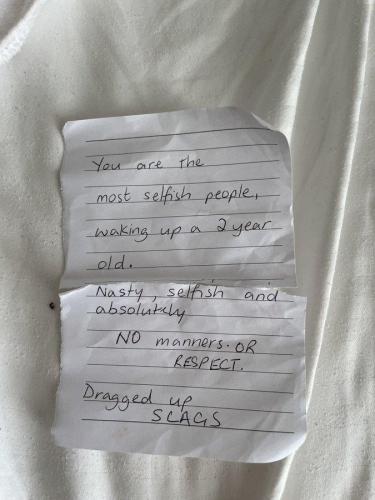 You are the
most selfish people,
waking up a 2 year
old.
Nasty, selfish and
absolutely
NO manners. OR
RESPECT.
Dragged up
SCAGS